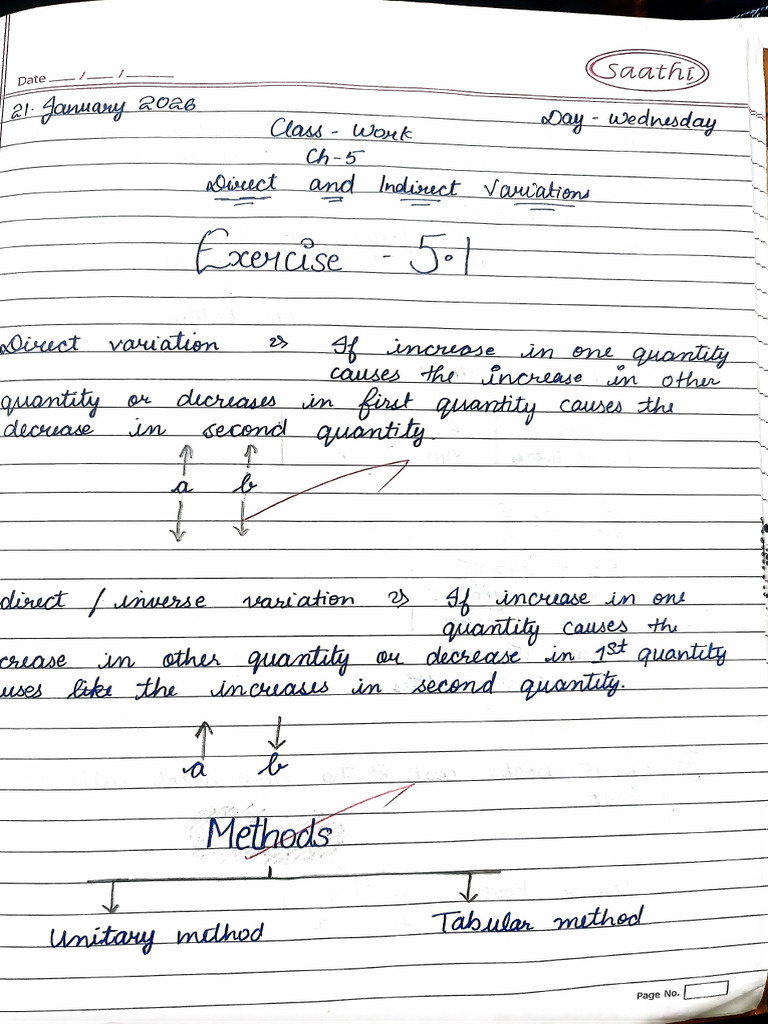 Date __/__/____
Saathi
21. January 2026
Day - Wednesday
Class - Work
Ch-5
Direct and Indirect Variations
Exercise - 5.1
Direct variation If increase in one quantity
causes the increase in other
quantity or decreases in first quantity causes the
decrease in second quantity.
a b
direct / inverse variation If increase in one
quantity causes the
crease in other quantity or decrease in 1st quantity
uses like the increases in second quantity.
a b
Methods
Unitary method
Tabular method
Page No.